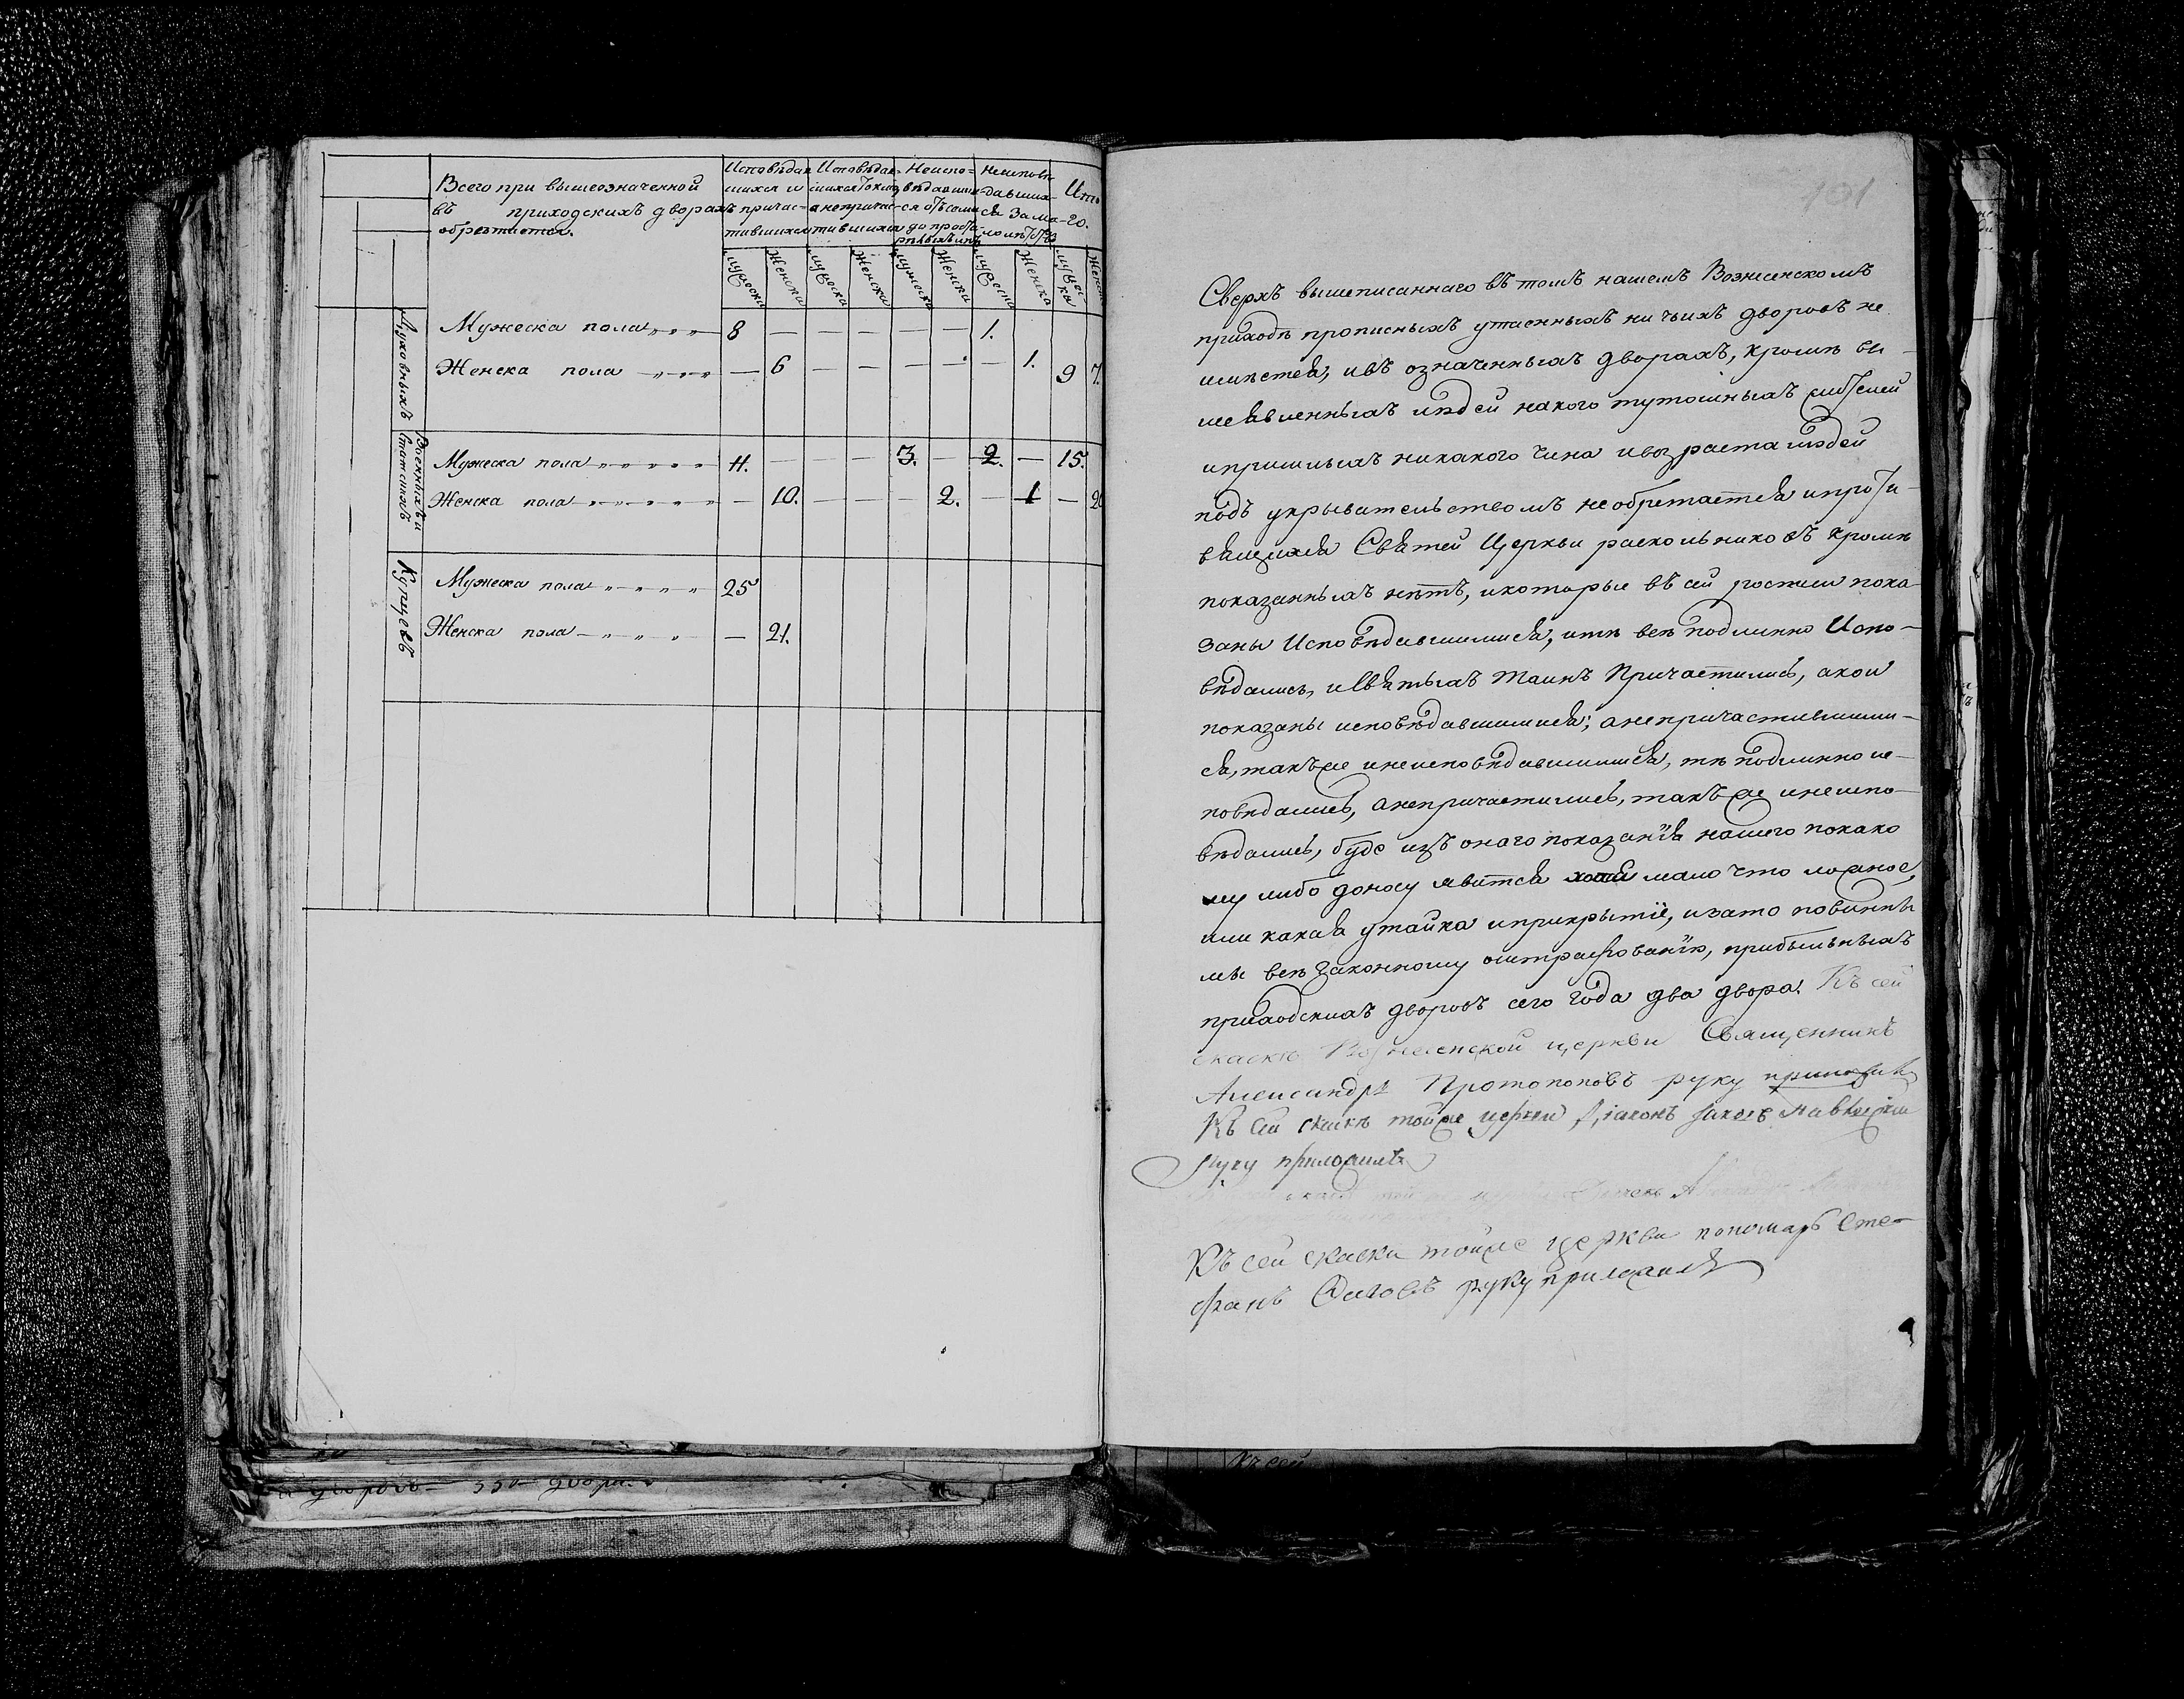 Всего при вышеозначенной
въ приходскихъ дворахъ
обретается.
Исповѣдав
шихся и
причас-
тившихся
Исповѣдав-
шихся токмо
а непричас-
тившихся
Неиспо-
вѣдавши-
ся отъ семи
до
Неисповѣ
давших-
ся за ма-
лолѣтств
Ито
го.
Мужеска
Женска
Мужеска
Женска
Мужеска
Женска
Мужеска
Женска
Мужес
ка
Женск
Духовныхъ
Мужеска пола 8 — — — — — — 1.
Женска пола — 6 — — — — — 1. 9 7.
Военныхъ и
статскихъ
Мужеска пола 11. — — — 3. — 2. — 15.
Женска пола — 10. — — — 2. — 1 — 2
Купцовъ
Мужеска пола 25
Женска пола — 21.
101
Сверхъ вышеписаннаго въ томъ нашемъ Вознесенскомъ
приходѣ прописныхъ утаенныхъ ни чьихъ дворовъ не
имѣется, и въ означенныхъ дворахъ, кромѣ вы-
шеявленныхъ людей накого тутошныхъ жителей
и пришлыхъ никакого чина и возраста людей
подъ укрывательствомъ необретается и проти-
вящихся Святей Церкви раскольниковъ кромѣ
показанныхъ нѣтъ, и которые въ сей росписи пока-
заны Исповѣдавшимися, и тѣ всѣ подлинно Испо-
вѣдались, и Святыхъ Таинъ Причастились, а кои
показаны исповѣдавшимися; а непричастившими-
ся, такъже и неисповѣдавшимися, тѣ подлинно ис-
повѣдались, а непричастились, такъже и неиспо-
вѣдались, буде изъ онаго показанія нашего по како
му либо доносу явится хотя мало что ложное,
или какая утайка и прикрытіе, и за то повинны
мы всѣ законному оштрафованію, прибыльныхъ
приходскихъ дворовъ сего года два двора. Къ сей
скаскѣ Вознесенской церкви Священникъ
Александръ Протопоповъ руку приложилъ
Къ сей скаскѣ тойже церкви Діаконъ
руку приложилъ
Къ сей скаски тойже церкви пономарь Сте-
фанъ руку приложилъ
Къ сей
дворовъ двора